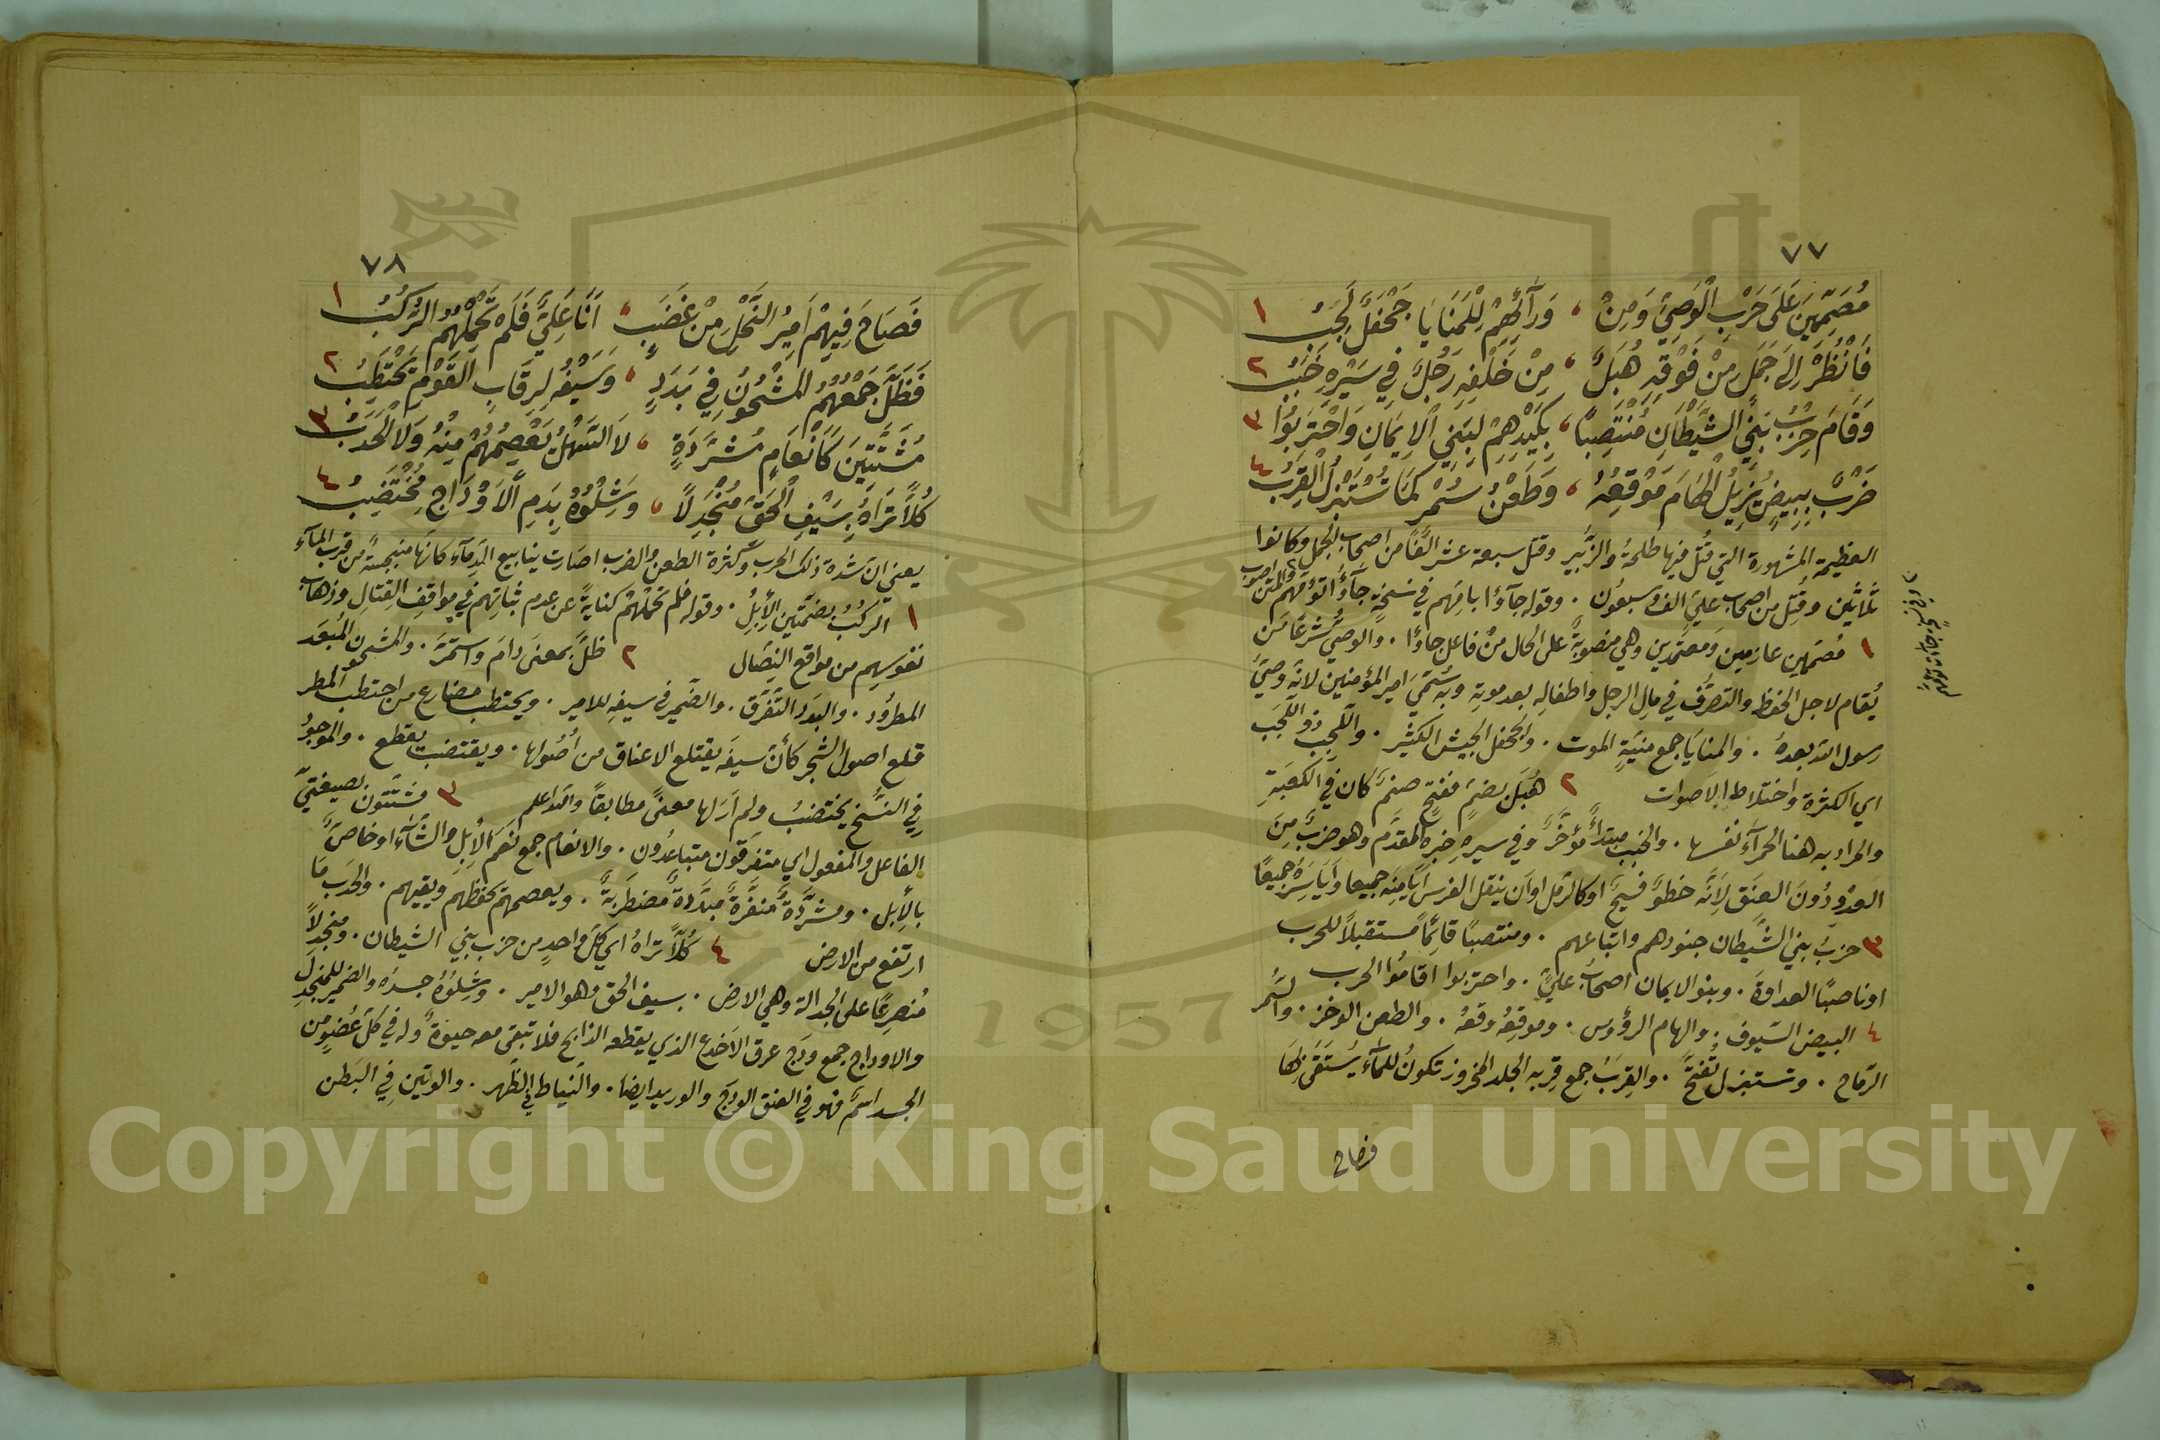 ٧٧
مُصَمِّمِينَ عَلَى حَرْبِ الْوَصِيِّ وَمِنْ ، وَرَآئِهِمْ لِلْمَنَايَا جَحْفَلٌ لَجِبُ ١
فَانْظُرْ اِلَى جَمَلٍ مِنْ فَوْقِهِ هُبَلٌ ، مِنْ خَلْفِهِ رَجُلٌ فِي سَيْرِهِ خَبَبُ ٢
وَقَامَ حِزْبُ بَنِي الشَّيْطَانِ مُنْتَصِبًا ، بِكَيْدِهِمْ لِبَنِي الْاِيمَانِ وَاحْتَرَبُوا ٣
ضَرْبٌ بِبِيضٍ يُزِيلُ الْهَامَ مَوْقِعُهُ ، وَطَعْنُ سُمْرٍ كَمَا تُسْتَبْزَلُ الْقِرَبُ ٤
العظيمة المشهورة التي قُتل فيها طلحةُ والزُّبير وقتل سبعة عشر الفًا من اصحاب الجمل وكانوا
ثلاثين وقُتِل من اصحاب عليّ الف وسبعون . وقوله جآؤا بامّهم في نسخةٍ جآؤا تؤمّهم والمتن اصوب
١ مُصَمّمين عازمين ومعتمدين وهي منصوبةٌ على الحال من فاعل جاؤا . والوصيّ شرعًا من
يُقام لاجل الحفظ والتصرُّف في مال الرجل واطفاله بعد موته وبه سُمّيَ امير المؤمنين لانّه وصيّ
رسول الله بعدهُ . والمنايا جمع منيّةٍ الموت . والجحفل الجيش الكثير . واللّجِب ذو اللَّجَب
اي الكثرة واختلاط الاصوات ٢ هُبَل بضمٍّ ففتحٍ صنمٌ كان في الكعبَةِ
والمراد به هنا الحمرآء نفسها . والخبب مبتدأٌ مؤخَّرٌ وفي سيرهِ خبرهُ المقدَّم وهو ضربٌ مِنَ
العدو دُونَ العنَق لِاَنّه خطوٌ فسيحٌ اوكالرمل او ان ينقل الفرس ايامنَه جميعا واياسرَهُ جميعًا
٣ حزبُ بني الشّيطان جنودهم واتباعهم . ومنتصبًا قائمًا مستقبلًا للحرب
او ناصبًا العداوة . وبنو الايمان اصحابُ عليّ . واحتربوا اقامُوا الحرب
٤ البيض السّيوف . والهام الرؤوس . وموقِعُهُ وقعهُ . والطعن الوخز . والسُّمر
الرّماح . وتستبزل تُفتحُ . والقِرَبُ جمع قِربه الجلد المخروز تكونُ للمآء يُستَقَى بِهَا
فصاح
٧٨
فَصَاحَ فِيهِمْ اَمِيرُ النَّحْلِ مِنْ غَضَبٍ ، اَنَا عَلِيٌّ فَلَمْ تَحْمِلْهُمُ الرُّكُبُ ١
فَظَلَّ جَمْعُهُمُ الْمَشْحُونُ فِي بَدَدٍ ، وَسَيْفُهُ لِرِقَابِ الْقَوْمِ يَحْتَطِبُ ٢
مُشَتَّتِينَ كَاَنْعَامٍ مُشَرَّدَةٍ ، لاَ السَّهْلُ يَعْصِمُهُمْ مِنْهُ وَلاَ الْحَدَبُ ٣
كُلاًّ تَرَاهُ بِسَيْفِ الْحَقِّ مُنْجَدِلًا ، وَشِلْوُهُ بِدَمِ الْاَوْدَاجِ مُخْتَضِبُ ٤
يعني ان شدة ذلك الحرب وكثرة الطعن والضرب اصارت ينابيع الدِّمآء كانّها منبجسةٌ من قِرب المآء
١ الرُّكُبُ بضمّتين الْاِبِلُ . وقوله فلم تحملهُمْ كنايةٌ عن عدم ثباتِهم في مواقف القِتال وذهاب
نفوسِهم من مواقع النِضَال ٢ ظلّ بمعنى دامَ واستمرَ . والمشحون المُبعَد
المطرُود . والبدَد التفرّق . والضّمير في سيفه للامير . ويحتطب مضارع من احتطب المطر
قلع اصول الشجر كأنّ سيفَه يقتلع الاعناق من اُصُولها . ويقتضب يقطع . والموجودُ
في النُّسخ يختضبُ ولم اَرَ لها معنًى مطابقًا والله اعلم ٣ مشَتّتون بصيغتيّ
الفاعل والمفعول اي متفرّقون متباعدُون . والانعام جمع نَعَم الْاِبِل والشّآء او خاصّ
بالْاِبِل . ومشرَّدةٌ منفَّرةٌ مبَدَّدةٌ مضطرَبةٌ . ويعصمهم يحفظهم ويقيهم . والحَدَب مَا
ارتفع من الارض ٤ كُلّاً تراهُ اي كلّ واحدٍ من حزب بني الشيطان . ومنجدلًا
مُنصرِعًا على الجدالة وهي الارض . بسيف الحق وهو الامير . وشِلوُهُ جسدُه والضمير للمنجدِل
والاوداج جمع ودَج عرق الاخدع الذي يقطعه الذابح فلا تبقى معه حيوةٌ وله في كلّ عُضوٍ من
الجسد اسمٌ فهو في العنق الودَج والوريد ايضا . والنياط في الظهر . والوتين فِي البَطن
Copyright © King Saud University
1957